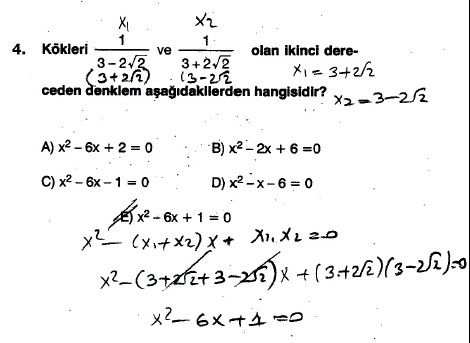 x₁ x₂
4. Kökleri 1/(3-2√2) ve 1/(3+2√2) olan ikinci dere-
(3+2√2) (3-2√2 x₁ = 3+2√2
ceden denklem aşağıdakilerden hangisidir? x₂ = 3-2√2
A) x² - 6x + 2 = 0 B) x² - 2x + 6 =0
C) x² - 6x - 1 = 0 D) x² - x - 6 = 0
E) x² - 6x + 1 = 0
x² - (x₁+x₂)x + x₁.x₂ = 0
x² - (3+2√2+3-2√2)x + (3+2√2)(3-2√2)=0
x² - 6x + 1 = 0